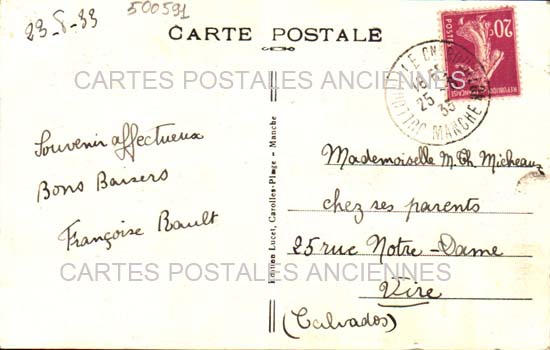 23-8-33
500591
CARTE POSTALE
20c
REPUBLIQUE FRANÇAISE
25
33
MANCHE
CARTES POSTALES ANCIENNES
Souvenir affectueux
Bons Baisers
Françoise Rault
Edition Lucet, Carolles-Plage - Manche
Mademoiselle M. Th. Micheaux
chez ses parents
25 rue Notre-Dame
Vire
(Calvados)
CARTES POSTALES ANCIENNES